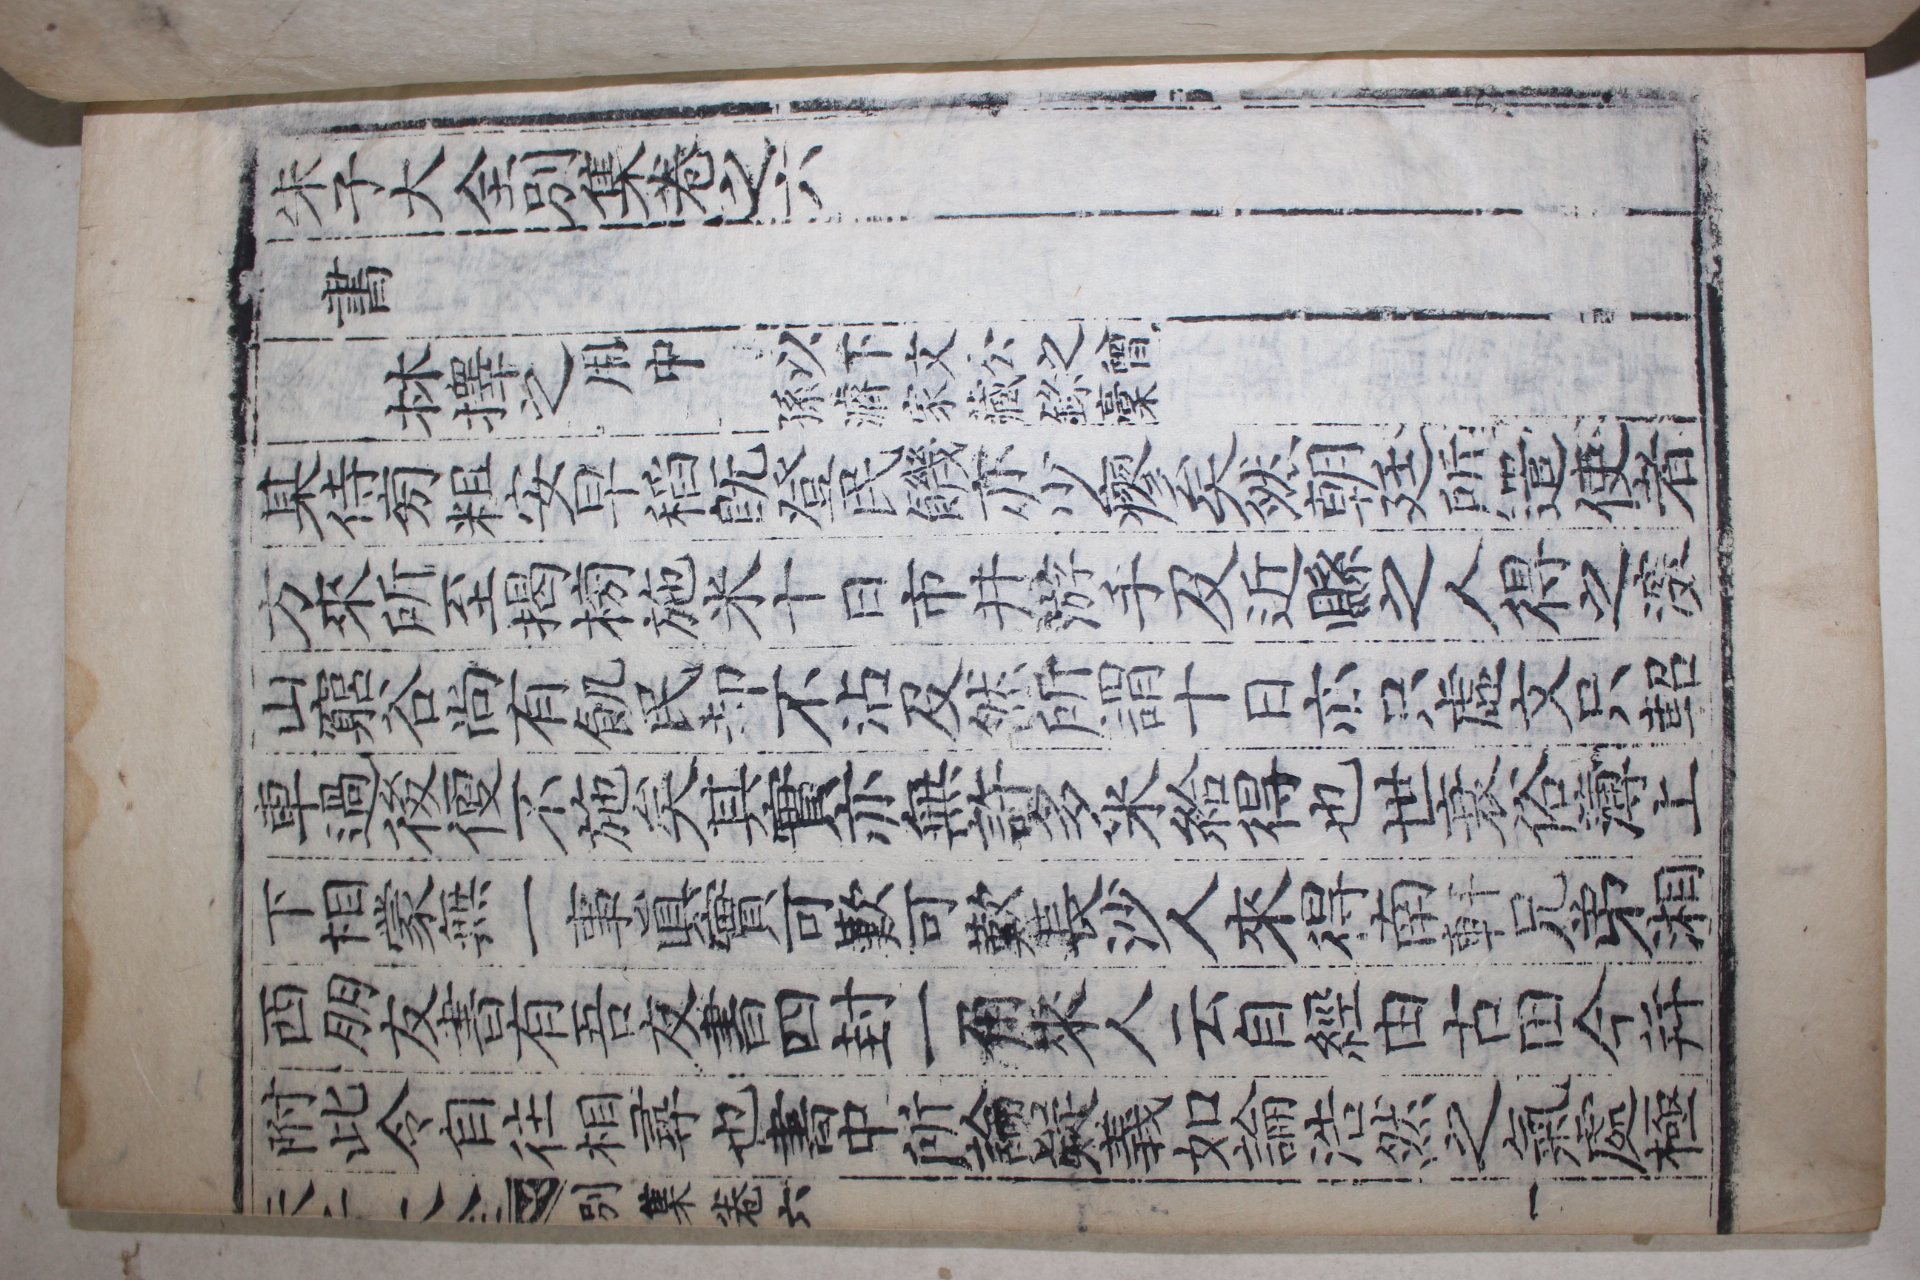 朱子大全別集卷之六
書
林擇之用中 以下文公之曾孫濬家藏錄藁
某侍旁粗安早稻既登民飢亦少瘳矣然朝廷所遣使者
方來所至揭榜施米十日市井游手及近縣之人得之深
山窮谷尚有飢民却不沾及然所謂十日亦只虛文只軺
車過後便不施矣其實亦無許多米給得也世衰俗薄上
下相蒙無一事眞實可歎可歎長沙人來得南軒兄弟湘
西朋友書有吾友書四封一角來人云自經由古田今幷
附此令自往相尋也書中所論疑義如論浩然之氣處極
別集卷六 一